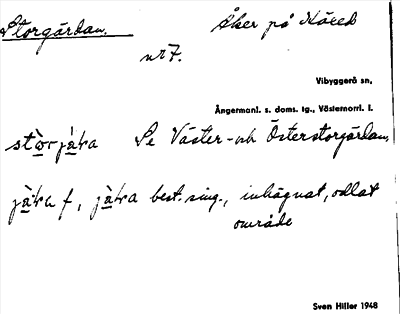 Storgårdan. Åker på Näset
nr 7.
Vibyggerå sn,
Ångermanl. s. doms. tg., Västernorrl. l.
stò̱rjà̱ra Se Väster- och Österstorgårdan.
jà̱ra f, jà̱ra best. sing., inhägnat, odlat
område
Sven Hiller 1948